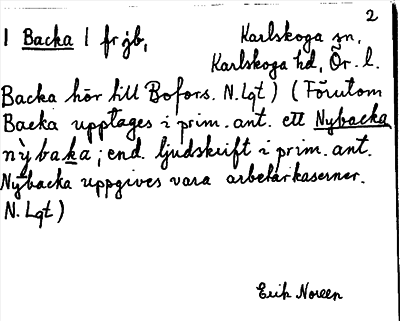 2
| Backa | fr jb, Karlskoga sn,
Karlskoga hd, Ör. l.
Backa hör till Bofors. N. Lgt) (Förutom
Backa upptages i prim. ant. ett Nybacka
nỳbaka; end. ljudskrift i prim. ant.
Nybacka uppgives vara arbetarkaserner.
N. Lgt)
Erik Noreen